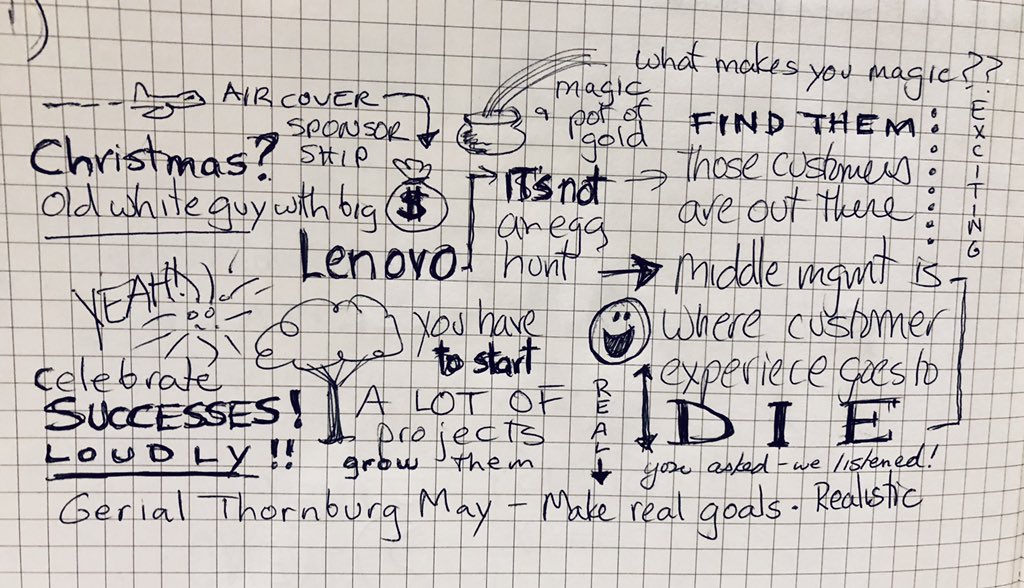 what makes you magic??
EXCITING
AIR COVER
SPONSOR
SHIP
a magic
pot of
gold
FIND THEM
those customers
are out there
Christmas?
Old white guy with big
$
Lenovo
It's not
an egg
hunt
middle mgmt is
where customer
experiece goes to
DIE
you asked - we listened!
YEAH!
celebrate
SUCCESSES!
LOUDLY!!
you have
to start
A LOT OF
projects
grow them
REAL
Gerial Thornburg May - Make real goals. Realistic